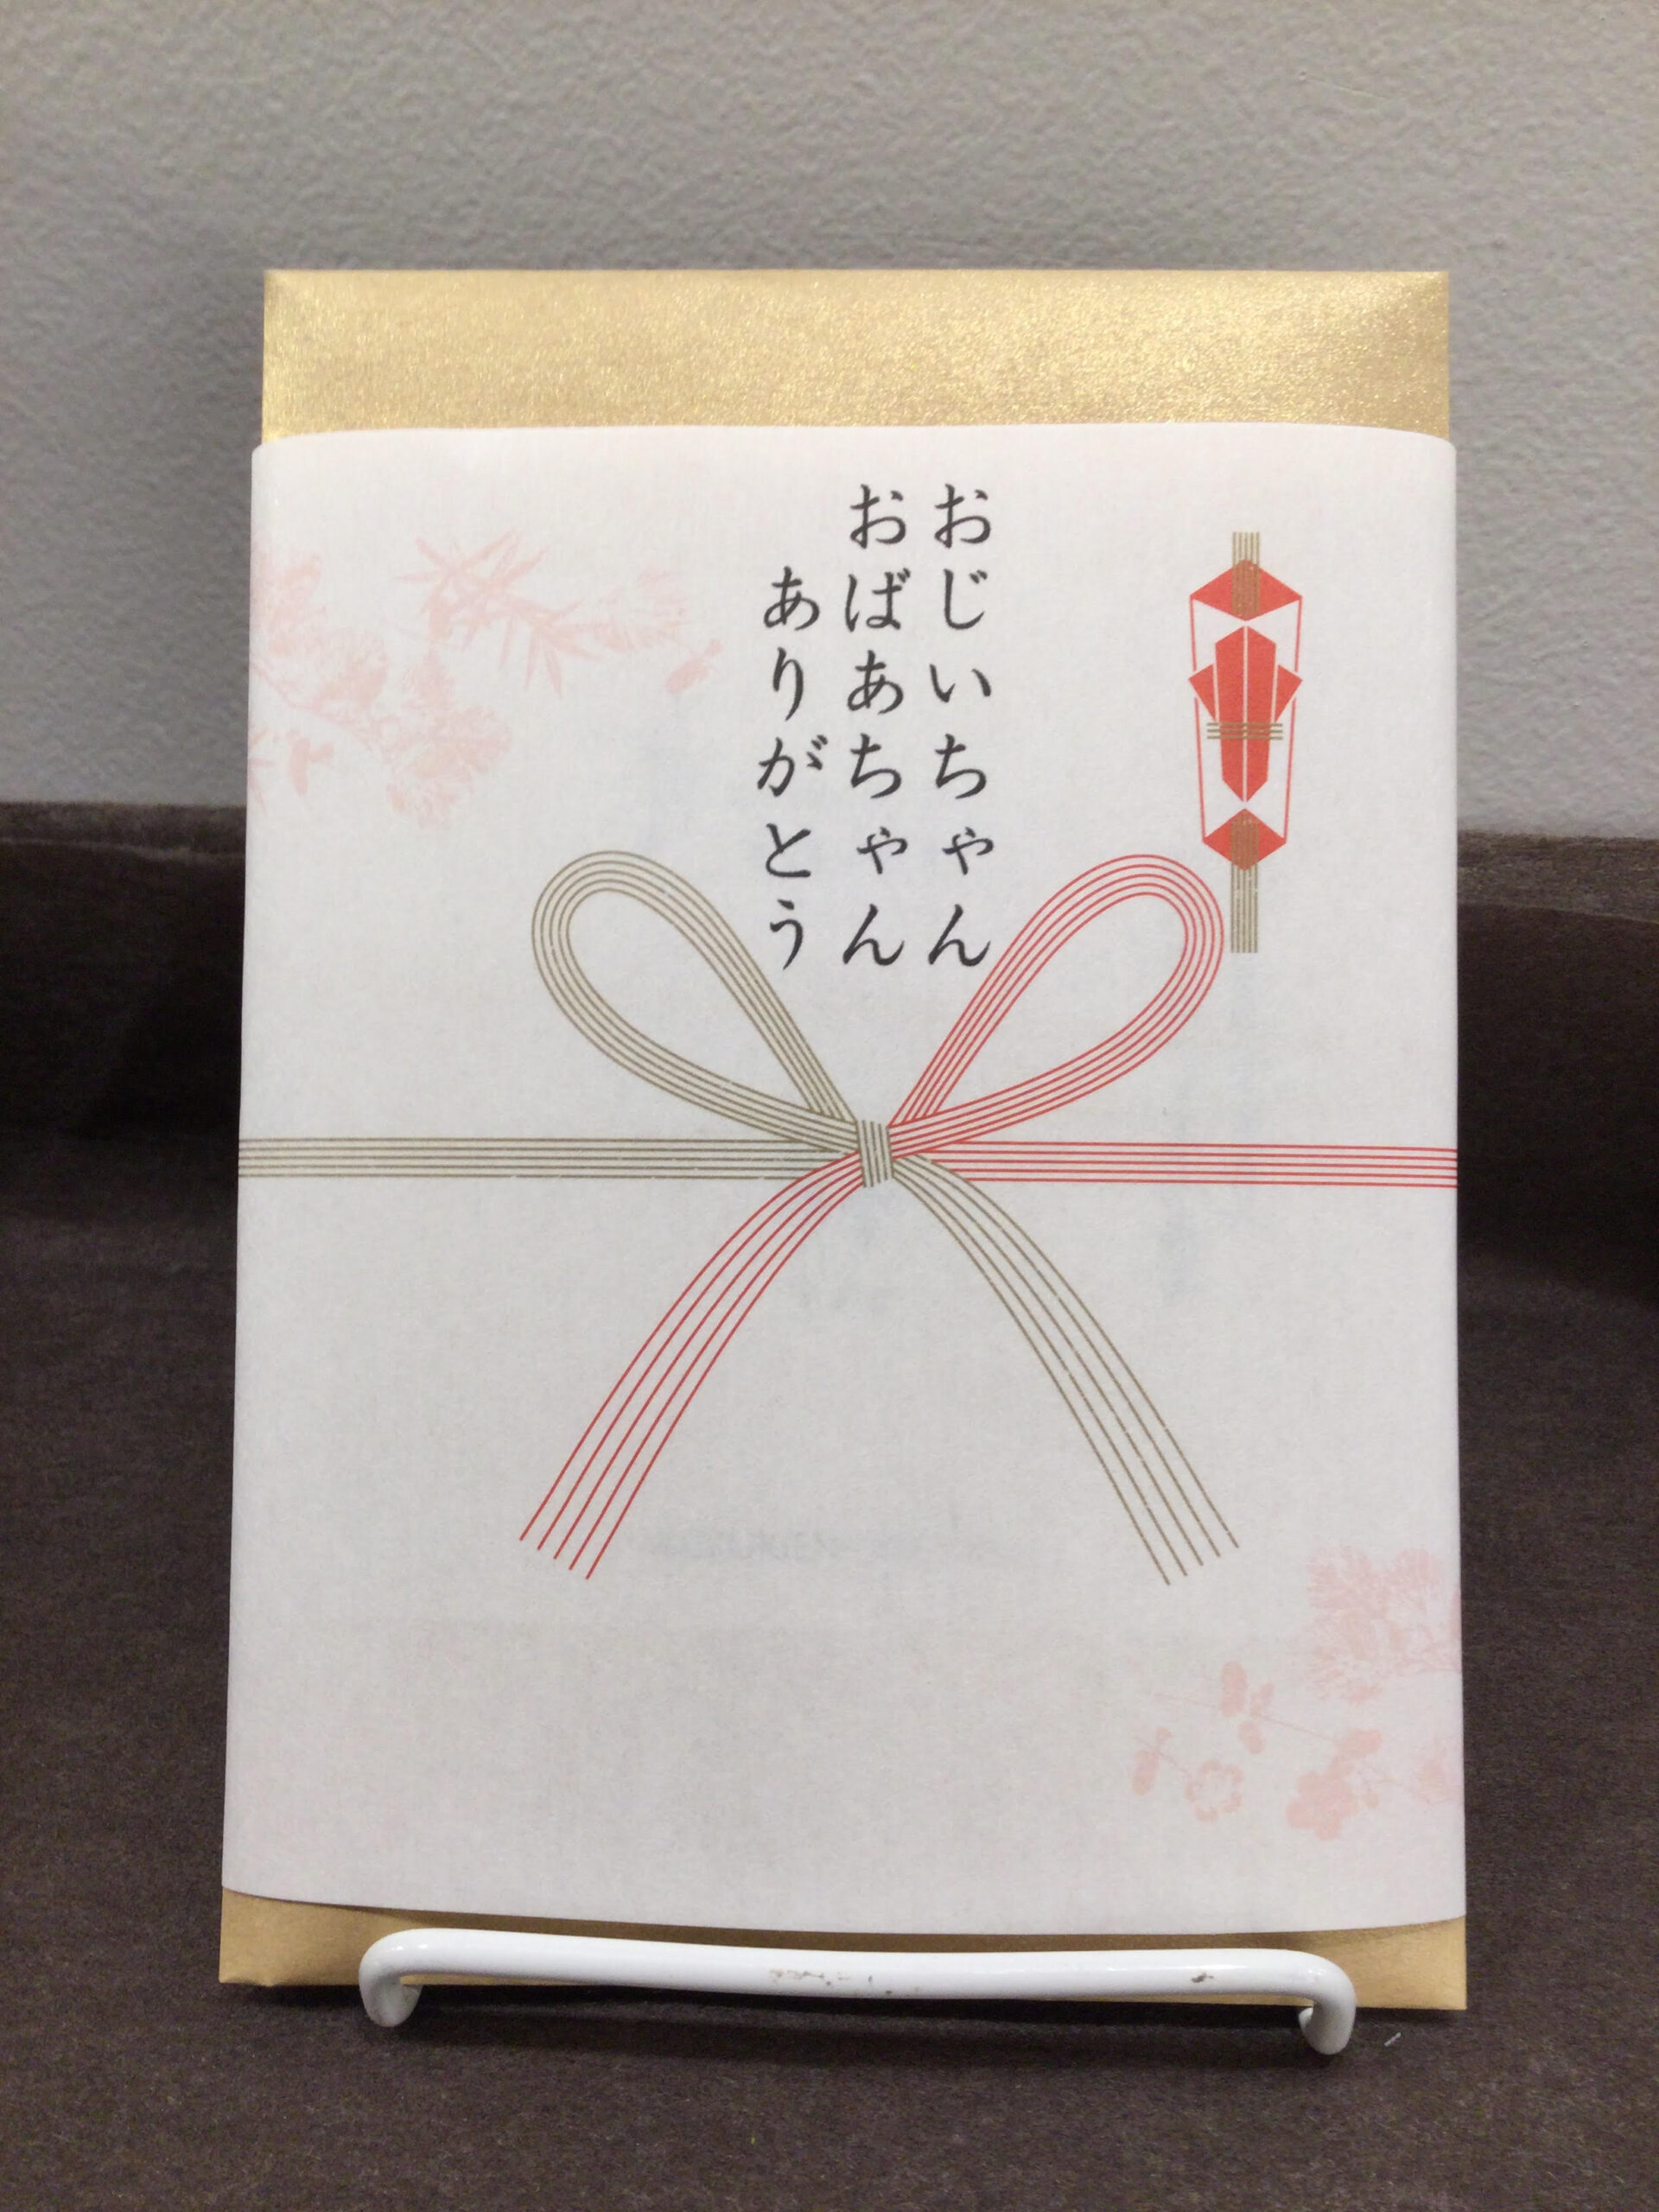 おじいちゃん
おばあちゃん
ありがとう